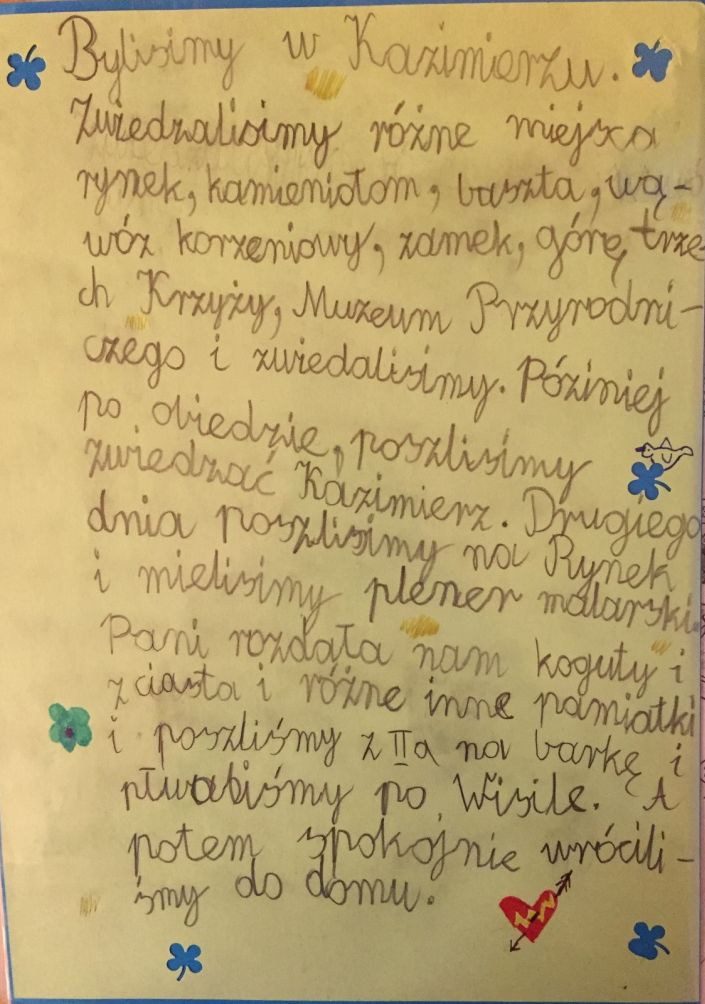 Bylisimy w Kazimierzu.
Zwiedzalisimy różne miejsca
rynek, kamieniołom, baszta, wą-
wóz korzeniowy, zamek, górę trze
ch Krzyży, Muzeum Przyrodni-
czego i zwiedalisimy. Póziniej
po obiedzie, poszlisimy
zwiedzać Kazimierz. Drugiego
dnia poszlisimy na Rynek
i mielisimy plener malarski.
Pani rozdała nam koguty i
z ciasta i różne inne pamiatki
i poszliśmy z IIa na barkę i
pływabiśmy po Wisile. A
potem spokojnie wrócili-
śmy do domu.